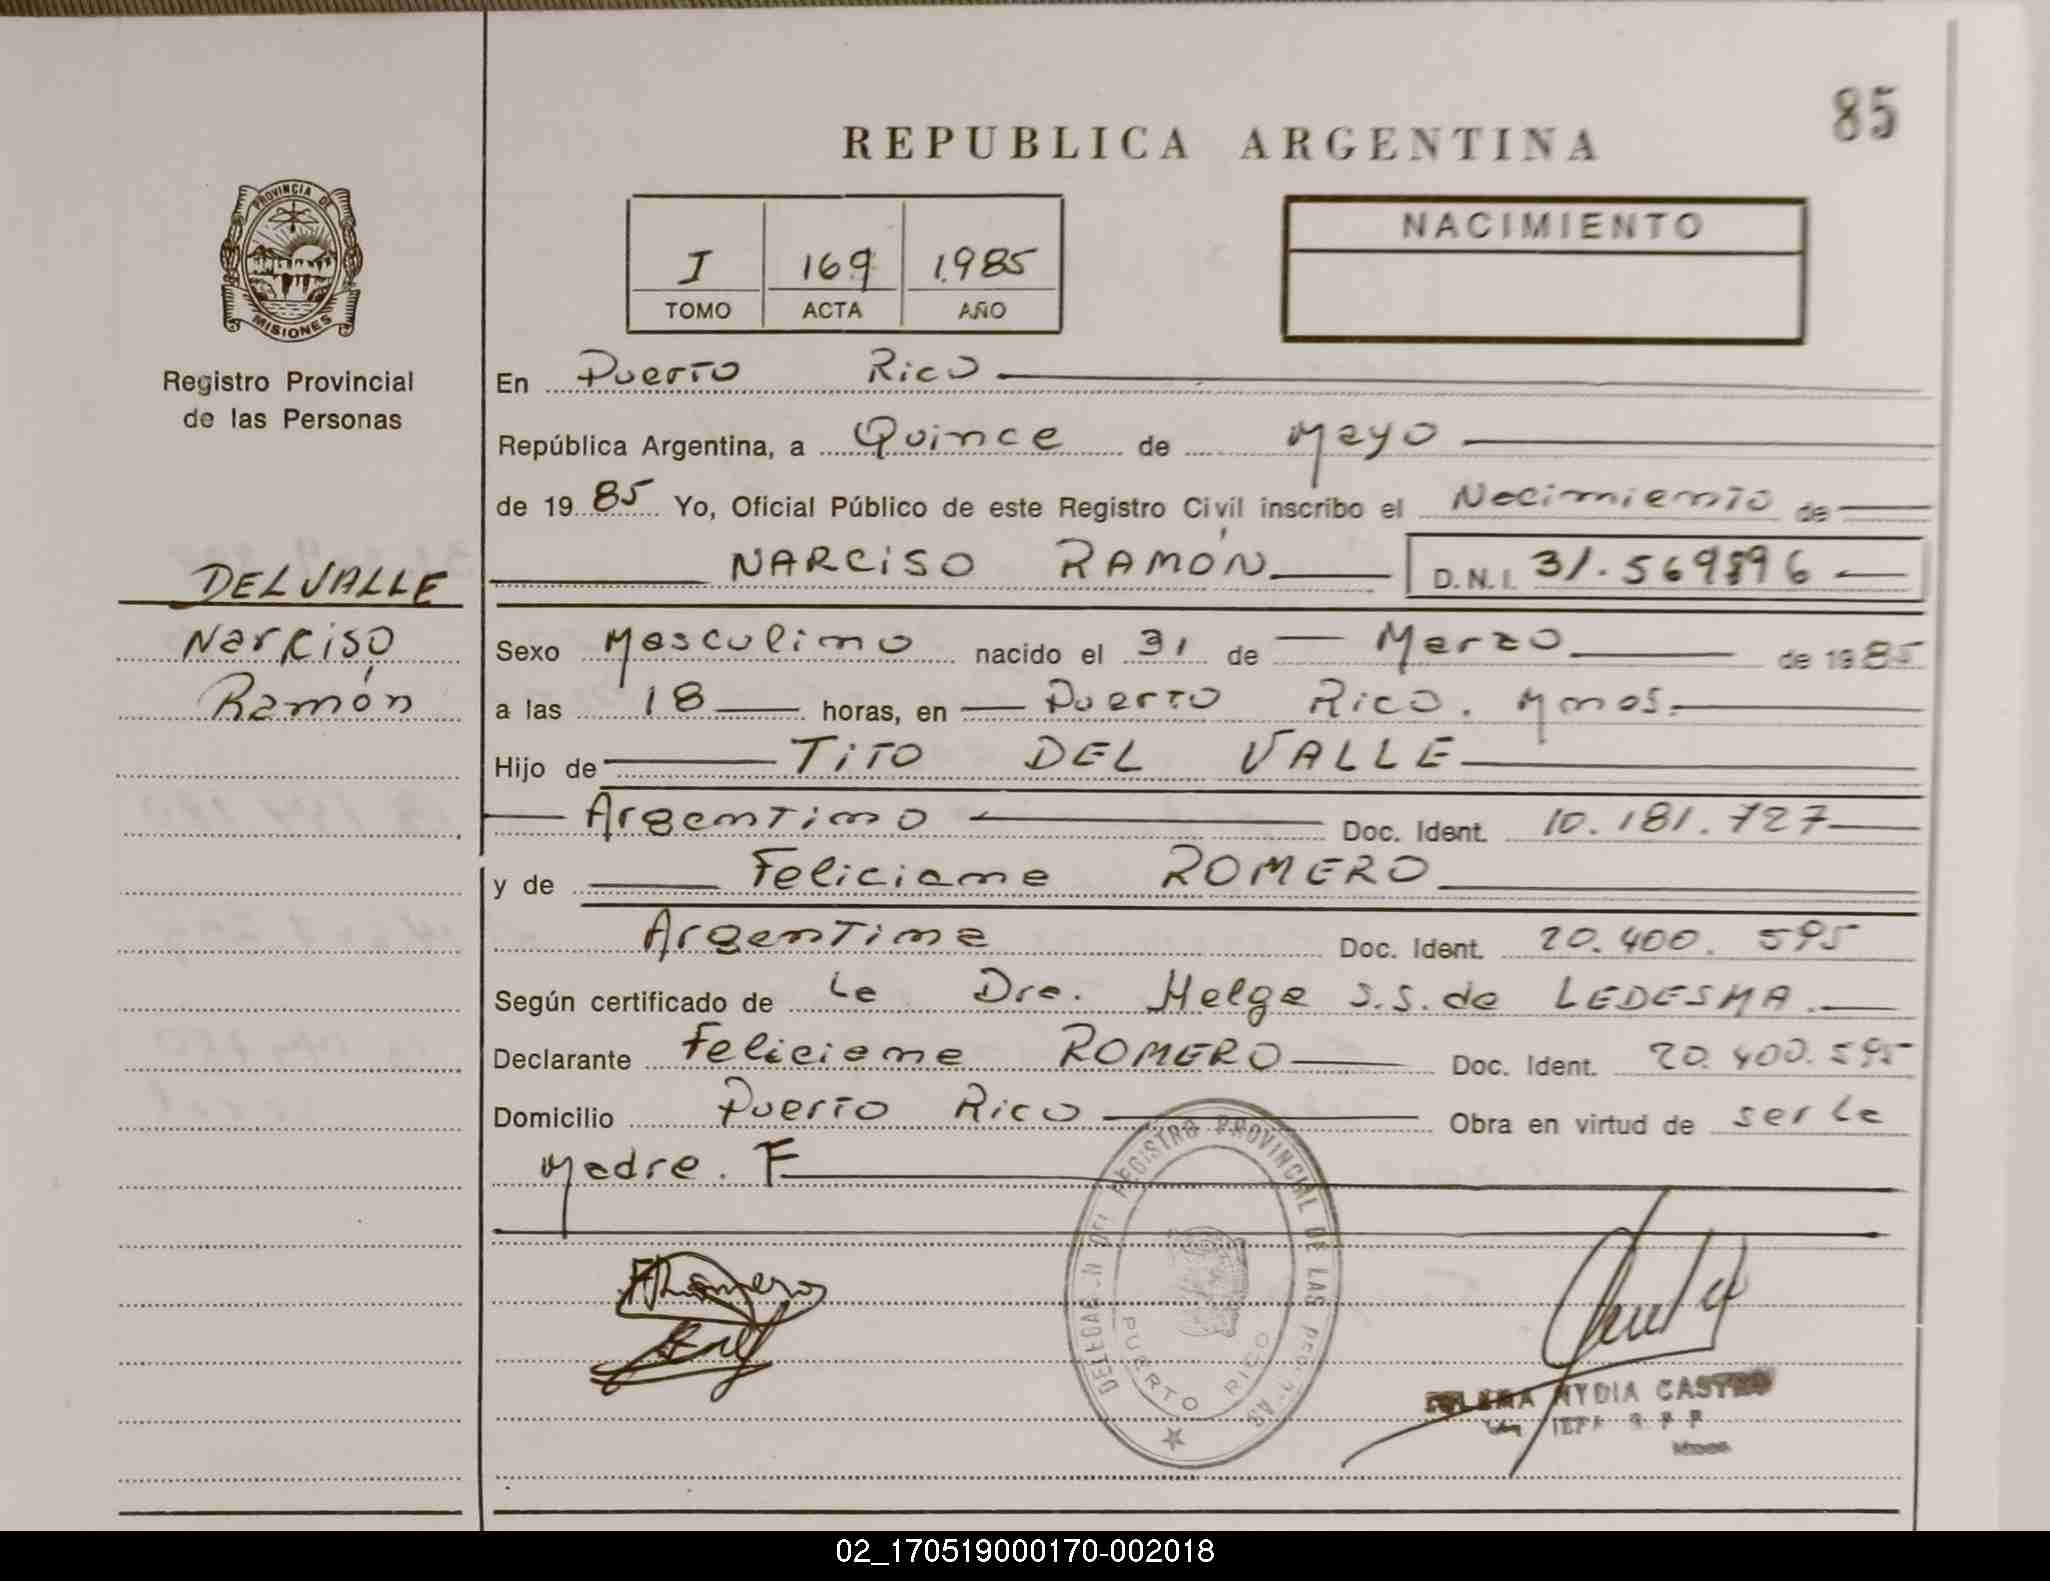 85
REPUBLICA ARGENTINA
PROVINCIA DE
MISIONES
Registro Provincial
de las Personas
I 169 1.985
TOMO ACTA AÑO
NACIMIENTO
En Puerto Rico
República Argentina, a Quince de Mayo
de 19 85 Yo, Oficial Público de este Registro Civil inscribo el Nacimiento de
DEL VALLE
NARCISO RAMÓN D.N.I. 31.569896
Narciso
Ramón
Sexo Masculino nacido el 31 de Marzo de 19 85
a las 18 horas, en Puerto Rico. Mnes.
Hijo de TITO DEL VALLE
Argentino Doc. Ident. 10.181.727
y de Feliciana ROMERO
Argentina Doc. Ident. 20.400.595
Según certificado de La Dra. Helga S.S. de LEDESMA.
Declarante Feliciana ROMERO Doc. Ident. 20.400.595
Domicilio Puerto Rico Obra en virtud de ser la
Madre. F
DEL REGISTRO PROVINCIAL DE LAS
PUERTO RICO
FRomero
NYDIA CASTRO
02_170519000170-002018